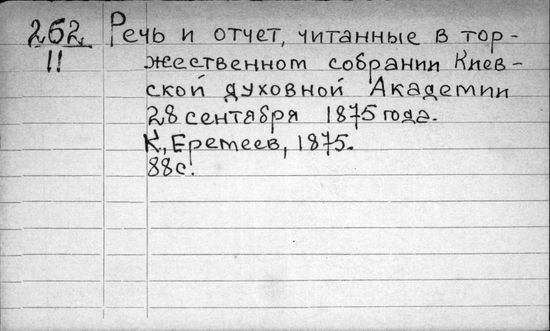 262 Речь и отчет, читанные в тор-
11 жественном собрании Киев-
ской духовной Академии
28 сентября 1875 года.
К, Еремеев, 1875.
88с.